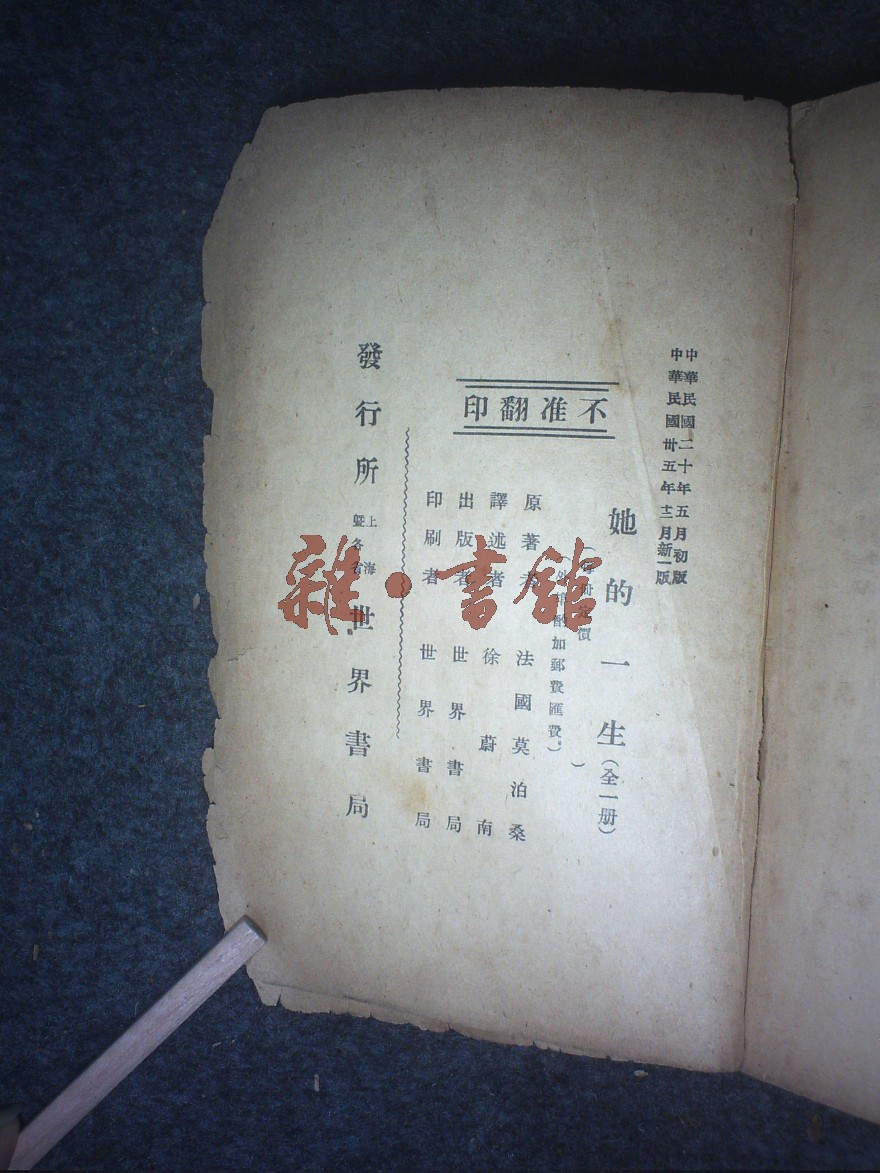 中華民國二十年五月初版
中華民國卅五年十二月新一版
她的一生(全一册)
(每册定價 )
(外埠酌加郵費匯費。)
不准翻印
原著者 法國莫泊桑
譯述者 徐蔚南
出版者 世界書局
印刷者 世界書局
發行所 上海暨各省 世界書局
雜·書館